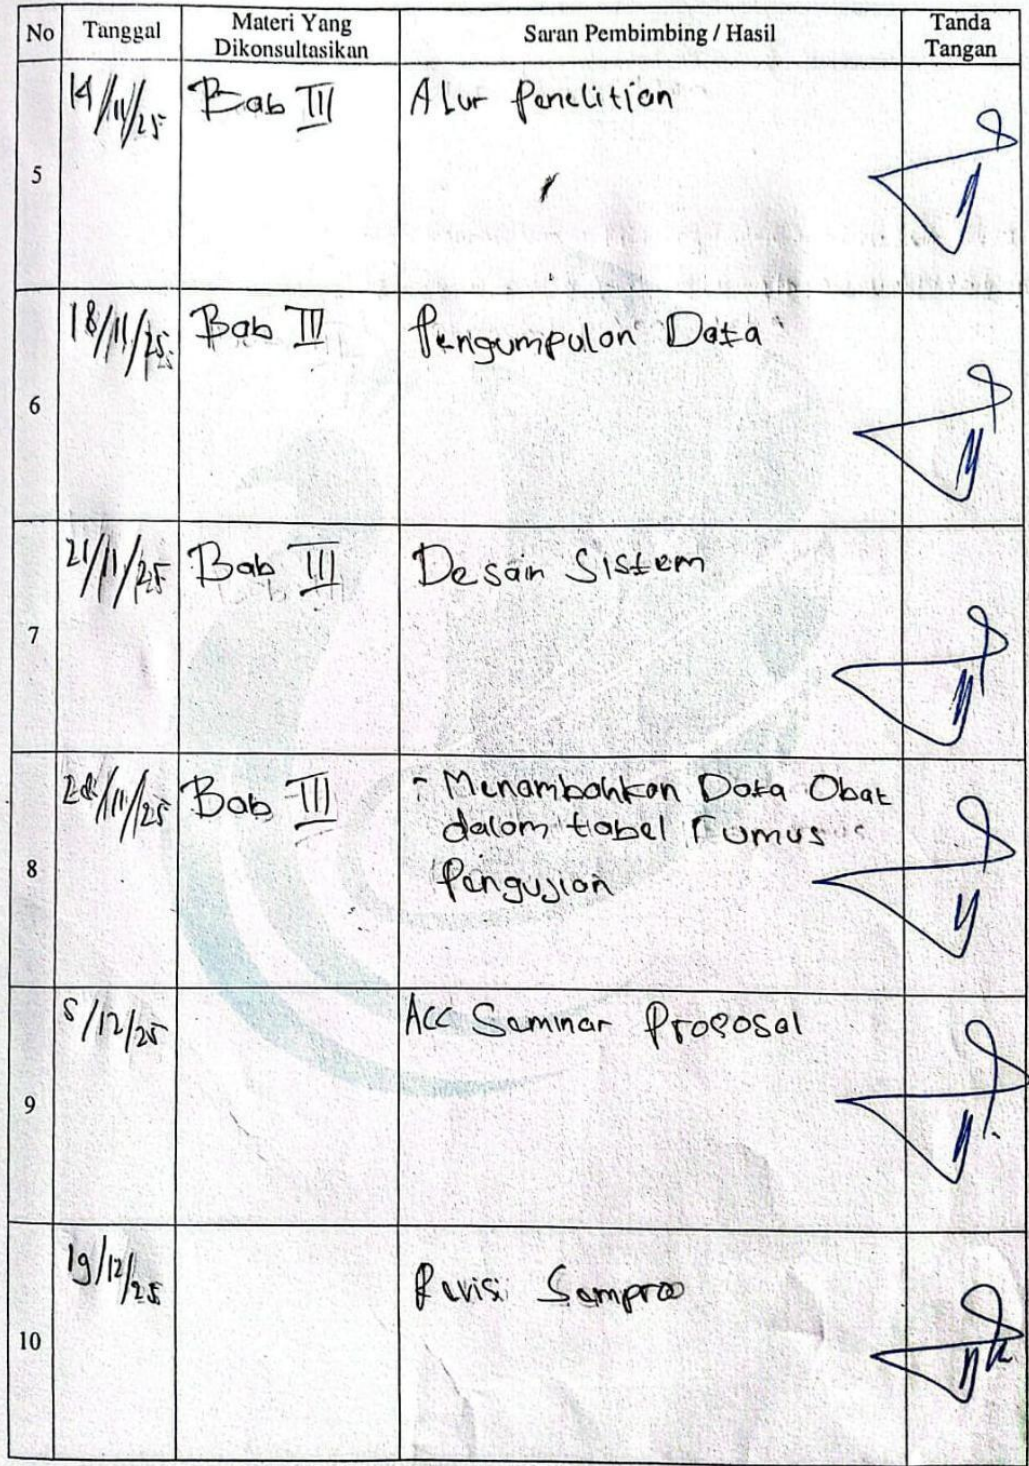 No Tanggal Materi Yang Dikonsultasikan Saran Pembimbing / Hasil Tanda Tangan
5 14/11/25 Bab III Alur Penelitian
6 18/11/25 Bab III Pengumpulan Data
7 21/11/25 Bab III Desain Sistem
8 28/11/25 Bab III - Menambahkan Data Obat
dalam tabel rumus
Pengujian
9 5/12/25 Acc Seminar Proposal
10 19/12/25 Revisi Sempro